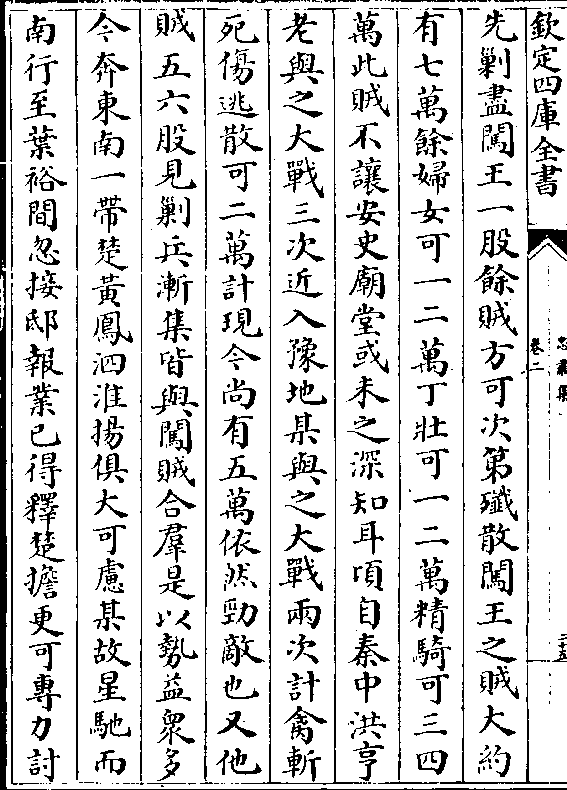 欽定四庫全書
卷二
先剿盡闖王一股餘賊方可次第殲散闖王之賊大約
有七萬餘婦女可一二萬丁壯可一二萬精騎可三四
萬此賊不讓安史廟堂或未之深知耳項自秦中洪亨
老與之大戰三次近入豫地某與之大戰兩次計禽斬
死傷逃散可二萬計現今尚有五萬依然勁敵也又他
賊五六股見剿兵漸集皆與闖賊合羣是以勢益衆多
今奔東南一帶楚黃鳳泗淮揚俱大可慮某故星馳而
南行至葉裕間忽接邸報業已得釋楚擔更可專力討